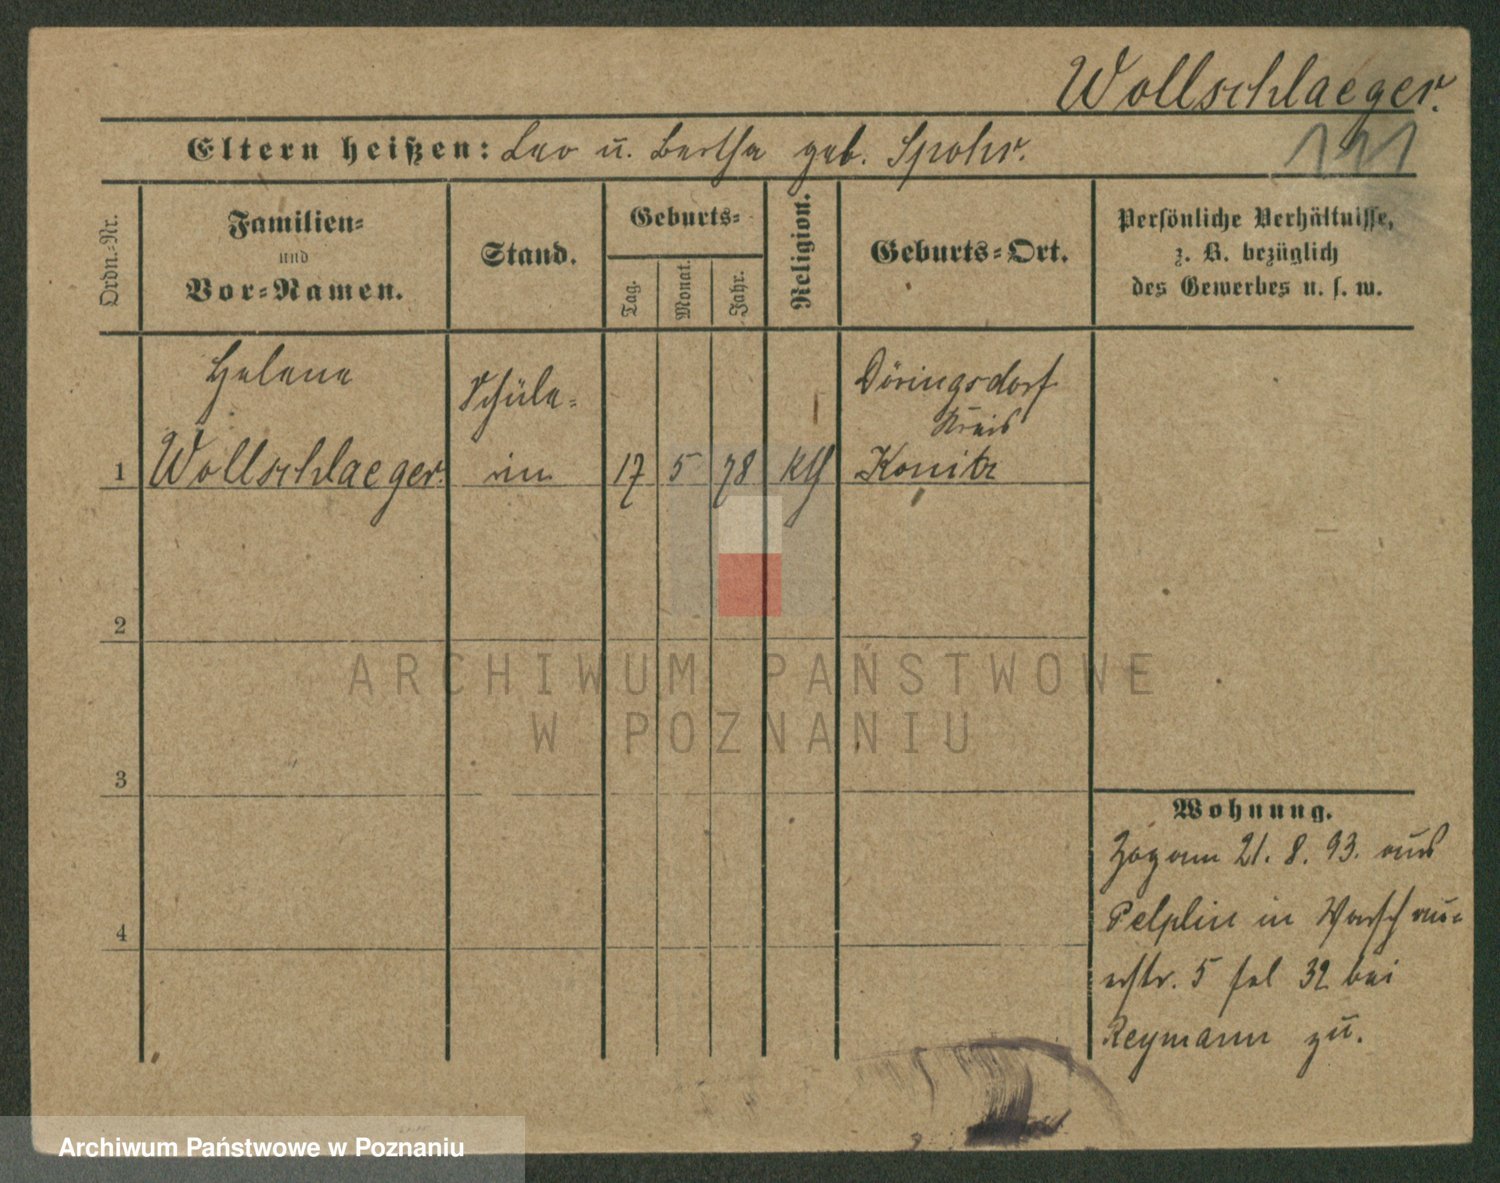 Wollschlaeger.
Eltern heißen: Leo u. Bertha geb. Spohr.
Ordn.-Nr.
Familien-
und
Vor-Namen.
Stand.
Geburts-
Tag.
Monat.
Jahr.
Religion.
Geburts-Ort.
Persönliche Verhältnisse,
z. B. bezüglich
des Gewerbes u. s. w.
Helene
Schüle-
Döringsdorf
Kreis
1 Wollschlaeger. rin 17 5 78 kth Konitz
2
ARCHIWUM PAŃSTWOWE
W POZNANIU
3
Wohnung.
Zog am 21. 8. 93. aus
Pelplin in Warschau-
erstr. 5 fol 32 bei
Reymann zu.
4
Archiwum Państwowe w Poznaniu